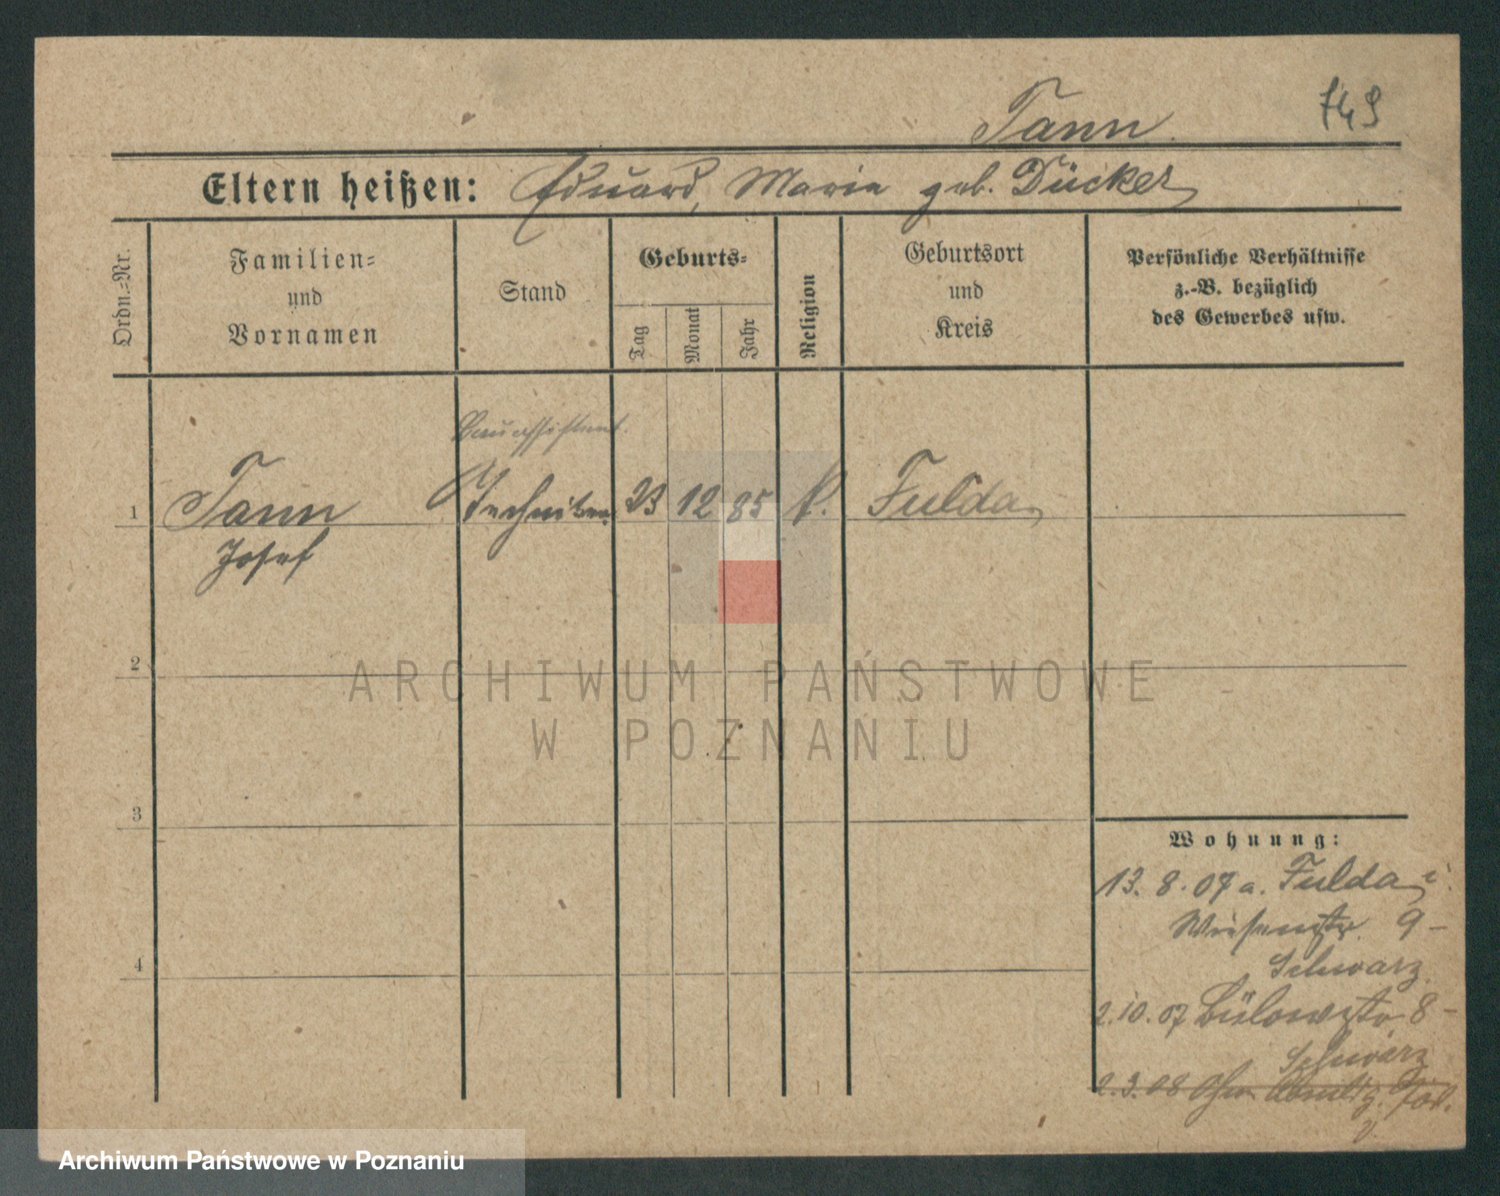 Tann
749
Eltern heißen: Eduard, Marie geb. Dücker
Ordn.-Nr.
Familien-
und
Vornamen
Stand
Geburts-
Tag
Monat
Jahr
Religion
Geburtsort
und
Kreis
Persönliche Verhältnisse
z.-B. bezüglich
des Gewerbes usw.
Bauassistent.
1 Tann Techniker 23 12 85 k. Fulda
Josef
2
ARCHIWUM PAŃSTWOWE
W POZNANIU
3
Wohnung:
13. 8. 07 a. Fulda i.
Wiesenstr. 9 –
Schwarz
4
2.10.07 Bülowstr 8 –
Schwarz
2.3.08
Archiwum Państwowe w Poznaniu